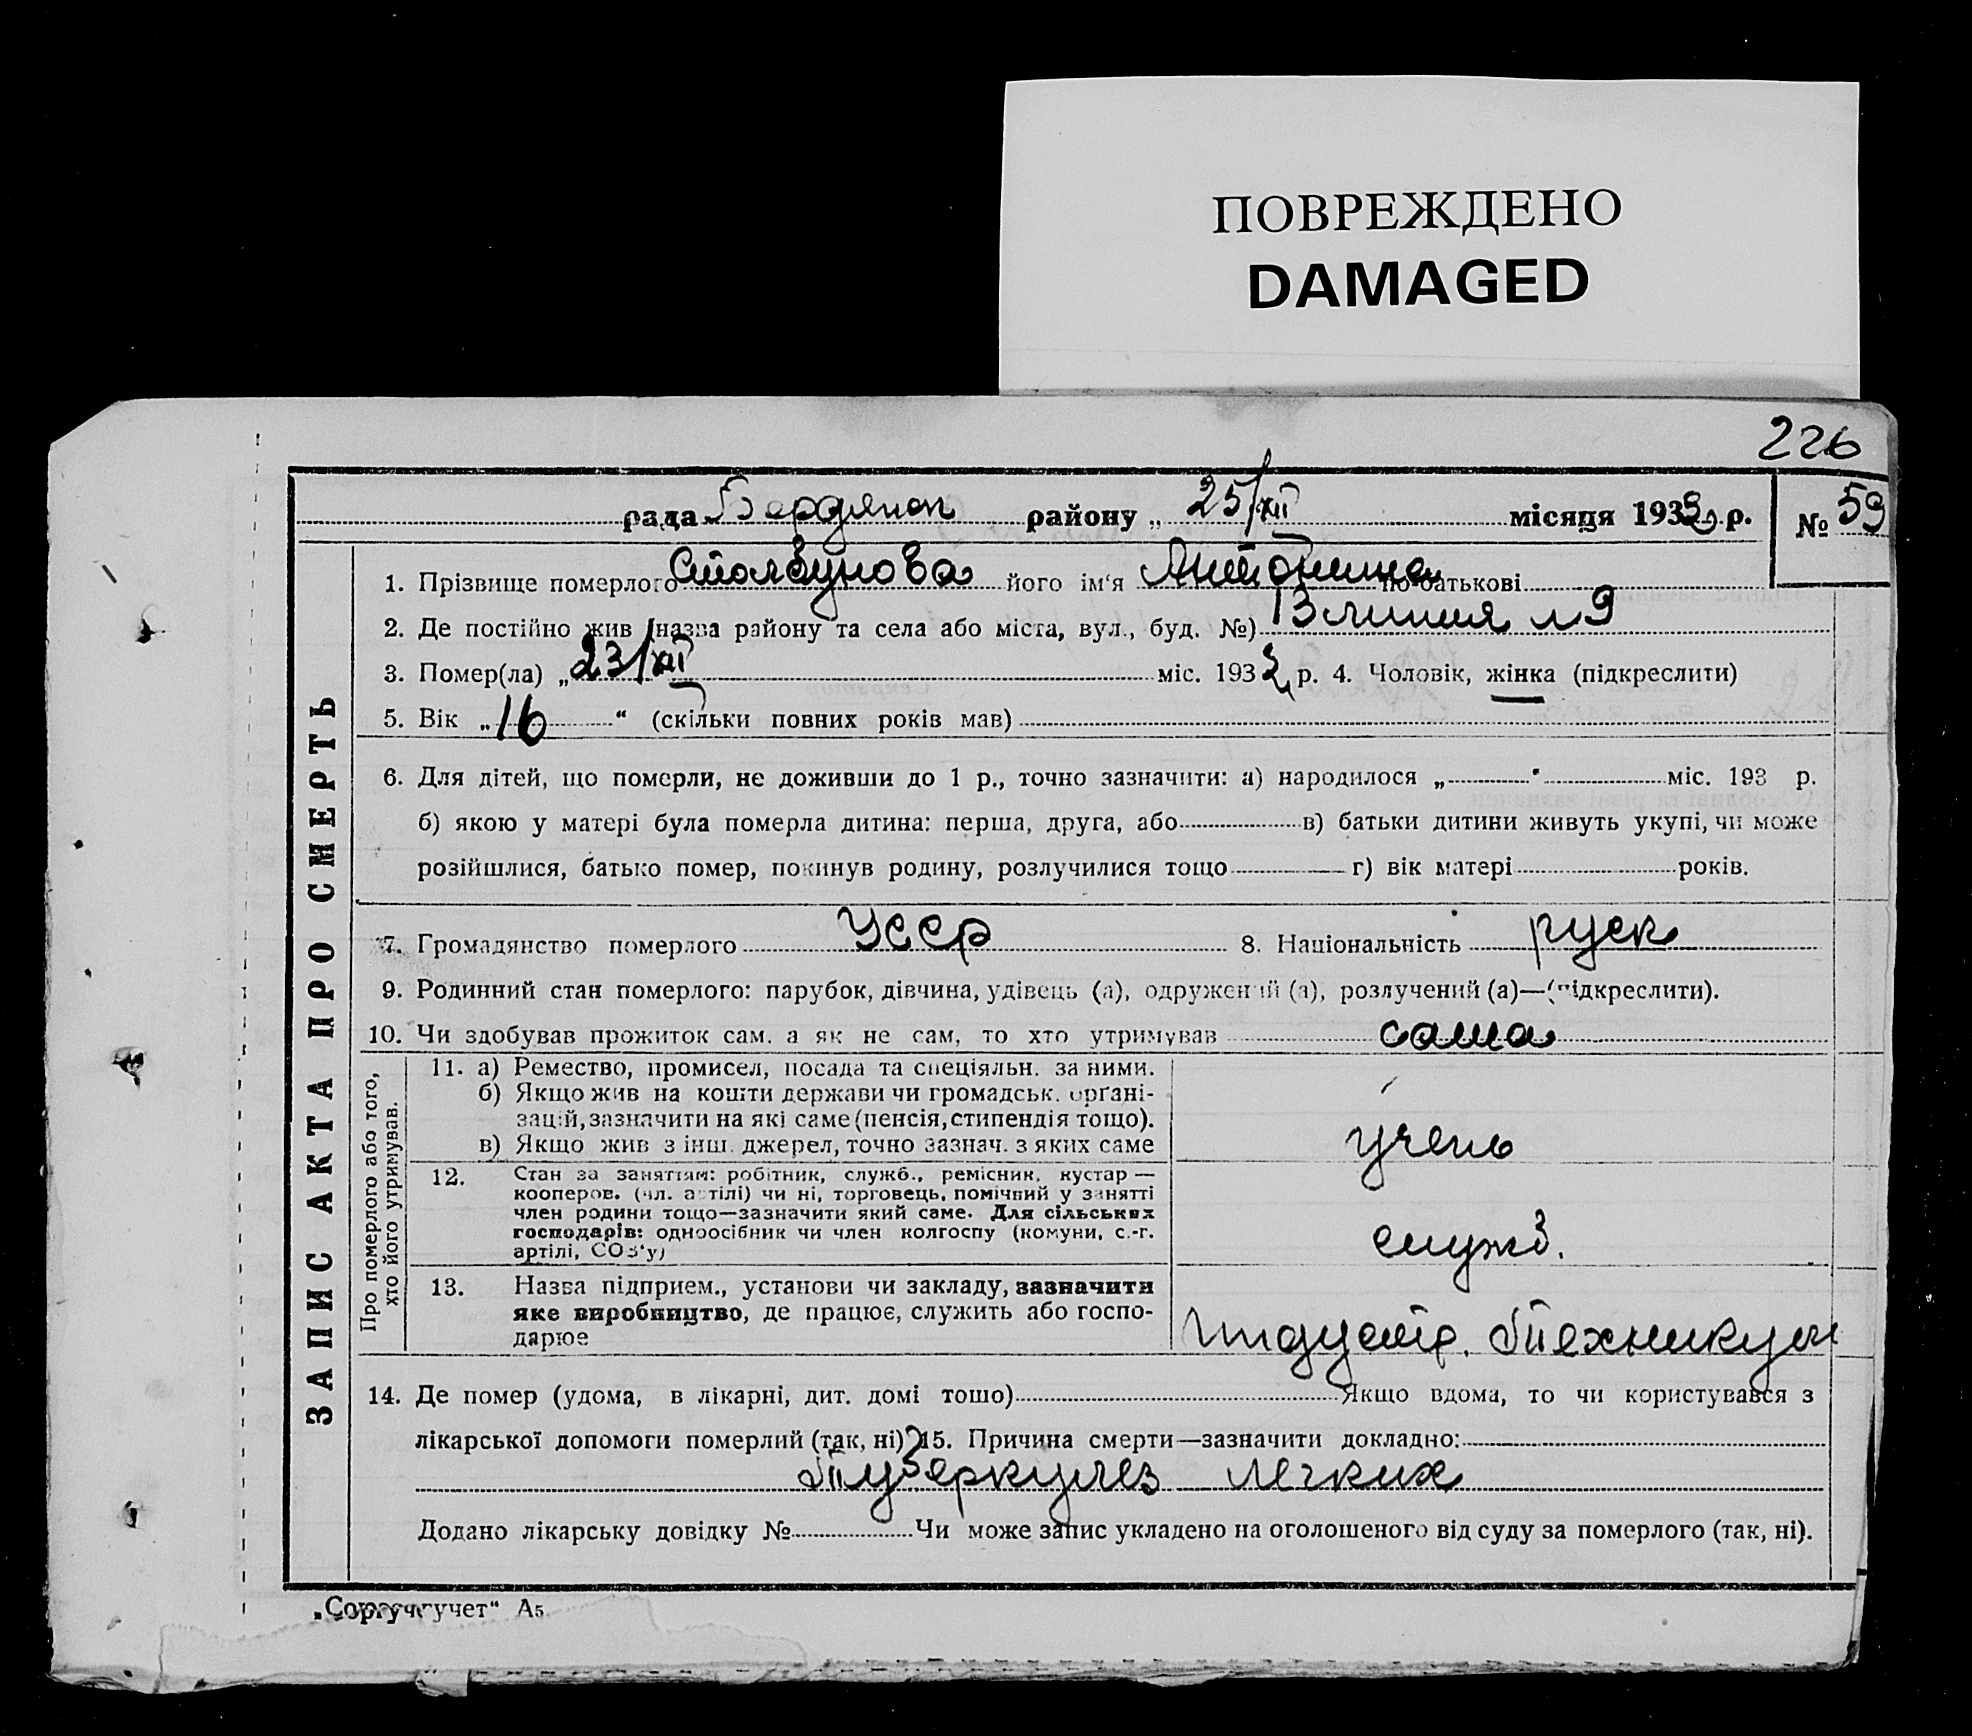 ПОВРЕЖДЕНО
DAMAGED
226
рада Бердянск району „ 25/XII місяця 1933 р. № 59
ЗАПИС АКТА ПРО СМЕРТЬ
1. Прізвище померлого Столбунова його ім'я Антонина по батькові
2. Де постійно жив (назва району та села або міста, вул., буд. №) 13 линия № 9
3. Помер(ла) „ 23/XII міс. 1933 р. 4. Чоловік, жінка (підкреслити)
5. Вік „ 16 “ (скільки повних років мав)
6. Для дітей, що померли, не доживши до 1 р., точно зазначити: а) народилося „ " міс. 193 р.
б) якою у матері була померла дитина: перша, друга, або в) батьки дитини живуть укупі, чи може
розійшлися, батько помер, покинув родину, розлучилися тощо г) вік матері років.
7. Громадянство померлого УССР 8. Національність руск
9. Родинний стан померлого: парубок, дівчина, удівець (а), одружений (а), розлучений (а)—(підкреслити).
10. Чи здобував прожиток сам, а як не сам, то хто утримував сама
Про померлого або того,
хто його утримував.
11. а) Ремество, промисел, посада та спеціяльн. за ними.
б) Якщо жив на кошти держави чи громадськ. органі-
зацій, зазначити на які саме (пенсія, стипендія тощо).
в) Якщо жив з інш. джерел, точно зазнач. з яких саме
учень
12. Стан за заняттям: робітник, служб., ремісник, кустар —
кооперов. (чл. артілі) чи ні, торговець, помічний у занятті
член родини тощо—зазначити який саме. Для сільських
господарів: одноосібник чи член колгоспу (комуни, с.-г.
артілі, СОЗ'у)
служб.
13. Назва підприєм., установи чи закладу, зазначити
яке виробництво, де працює, служить або госпо-
дарює
Индустр. Техникум
14. Де помер (удома, в лікарні, дит. домі тощо) Якщо вдома, то чи користувався з
лікарської допомоги померлий (так, ні) 15. Причина смерти—зазначити докладно:
Туберкулез легких
Додано лікарську довідку № Чи може запис укладено на оголошеного від суду за померлого (так, ні).
„Соргучгучет“ А5